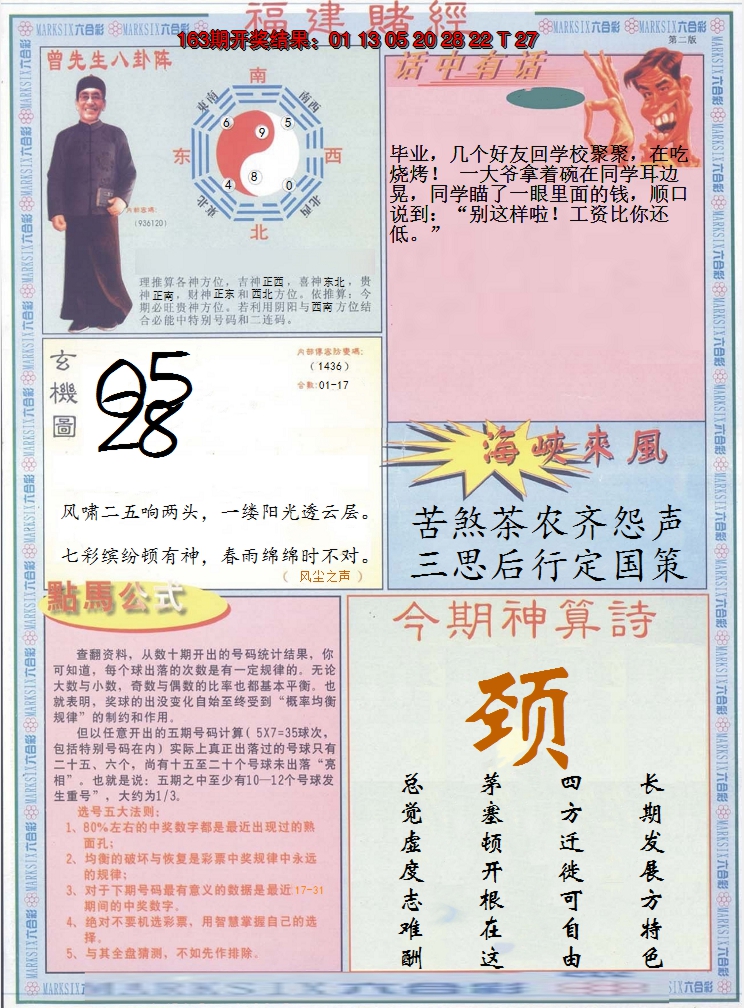 福建賭經
163期开奖结果：01 13 05 20 28 22 T 27
第二版
曾先生八卦阵
南
东南
南西
6
9
5
东
西
4
8
0
東北
北西
北
内部密碼:
(936120)
理推算各神方位，吉神正西，喜神东北，贵
神正南，财神正东和西北方位。依推算：今
期必旺贵神方位。若利用阴阳与西南方位结
合必能中特别号码和二连码。
话中有话
毕业，几个好友回学校聚聚，在吃
烧烤！ 一大爷拿着碗在同学耳边
晃，同学瞄了一眼里面的钱，顺口
说到：“别这样啦！工资比你还
低。”
玄機圖
05
28
(1436)
合数:01-17
风啸二五响两头，一缕阳光透云层。
七彩缤纷顿有神，春雨绵绵时不对。
（ 风尘之声 ）
海峡來風
苦煞茶农齐怨声
三思后行定国策
點馬公式
查翻资料，从数十期开出的号码统计结果，你
可知道，每个球出落的次数是有一定规律的。无论
大数与小数，奇数与偶数的比率也都基本平衡。也
就表明，奖球的出没变化自始至终受到“概率均衡
规律”的制约和作用。
但以任意开出的五期号码计算（5X7=35球次，
包括特别号码在内）实际上真正出落过的号球只有
二十五、六个，尚有十五至二十个号球未出落“亮
相”。也就是说：五期之中至少有10—12个号球发
生重号”，大约为1/3。
选号五大法则：
1、80%左右的中奖数字都是最近出现过的熟
面孔；
2、均衡的破坏与恢复是彩票中奖规律中永远
的规律；
3、对于下期号码最有意义的数据是最近17-31
期间的中奖数字。
4、绝对不要机选彩票，用智慧掌握自己的选
择。
5、与其全盘猜测，不如先作排除。
今期神算詩
颈
长期发展方特色
四方迁徙可自由
茅塞顿开根在这
总觉虚度志难酬
MARKSIX六合彩